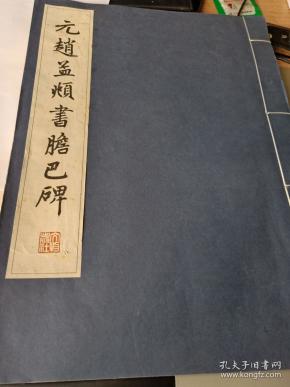 元趙孟頫書膽巴碑
孔夫子旧书网
book.kongfz.com